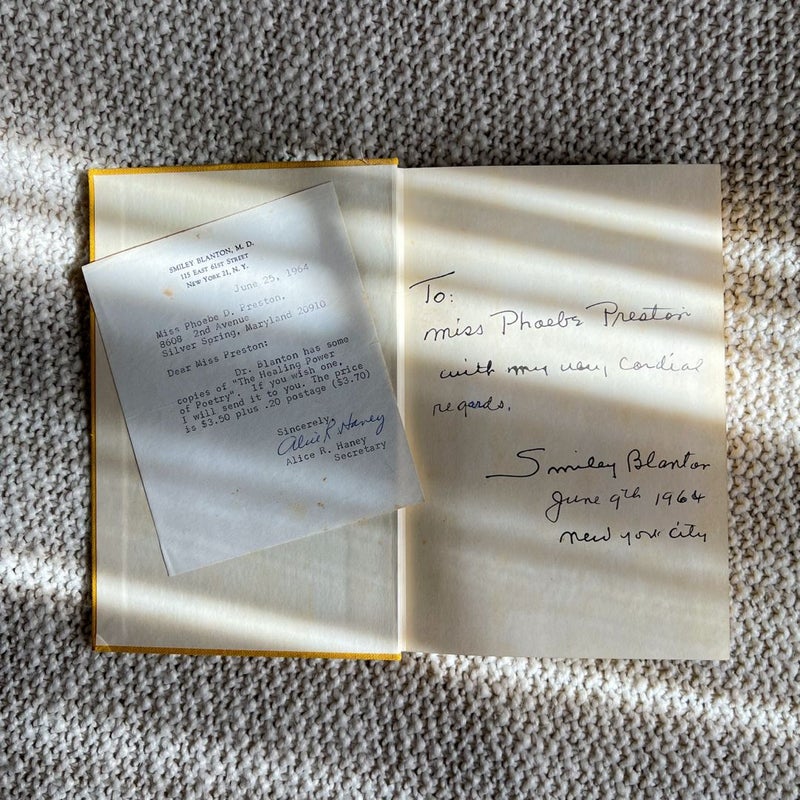 SMILEY BLANTON, M. D.
115 EAST 61ST STREET
NEW YORK 21, N. Y.
June 25, 1964
Miss Phoebe D. Preston,
8608 2nd Avenue
Silver Spring, Maryland 20910
Dear Miss Preston:
Dr. Blanton has some
copies of "The Healing Power
of Poetry". If you wish one,
I will send it to you. The price
is $3.50 plus .20 postage ($3.70)
Sincerely,
Alice R. Haney
Alice R. Haney
Secretary
To:
Miss Phoebe Preston
with my very cordial
regards.
Smiley Blanton
June 9th 1964
New York City